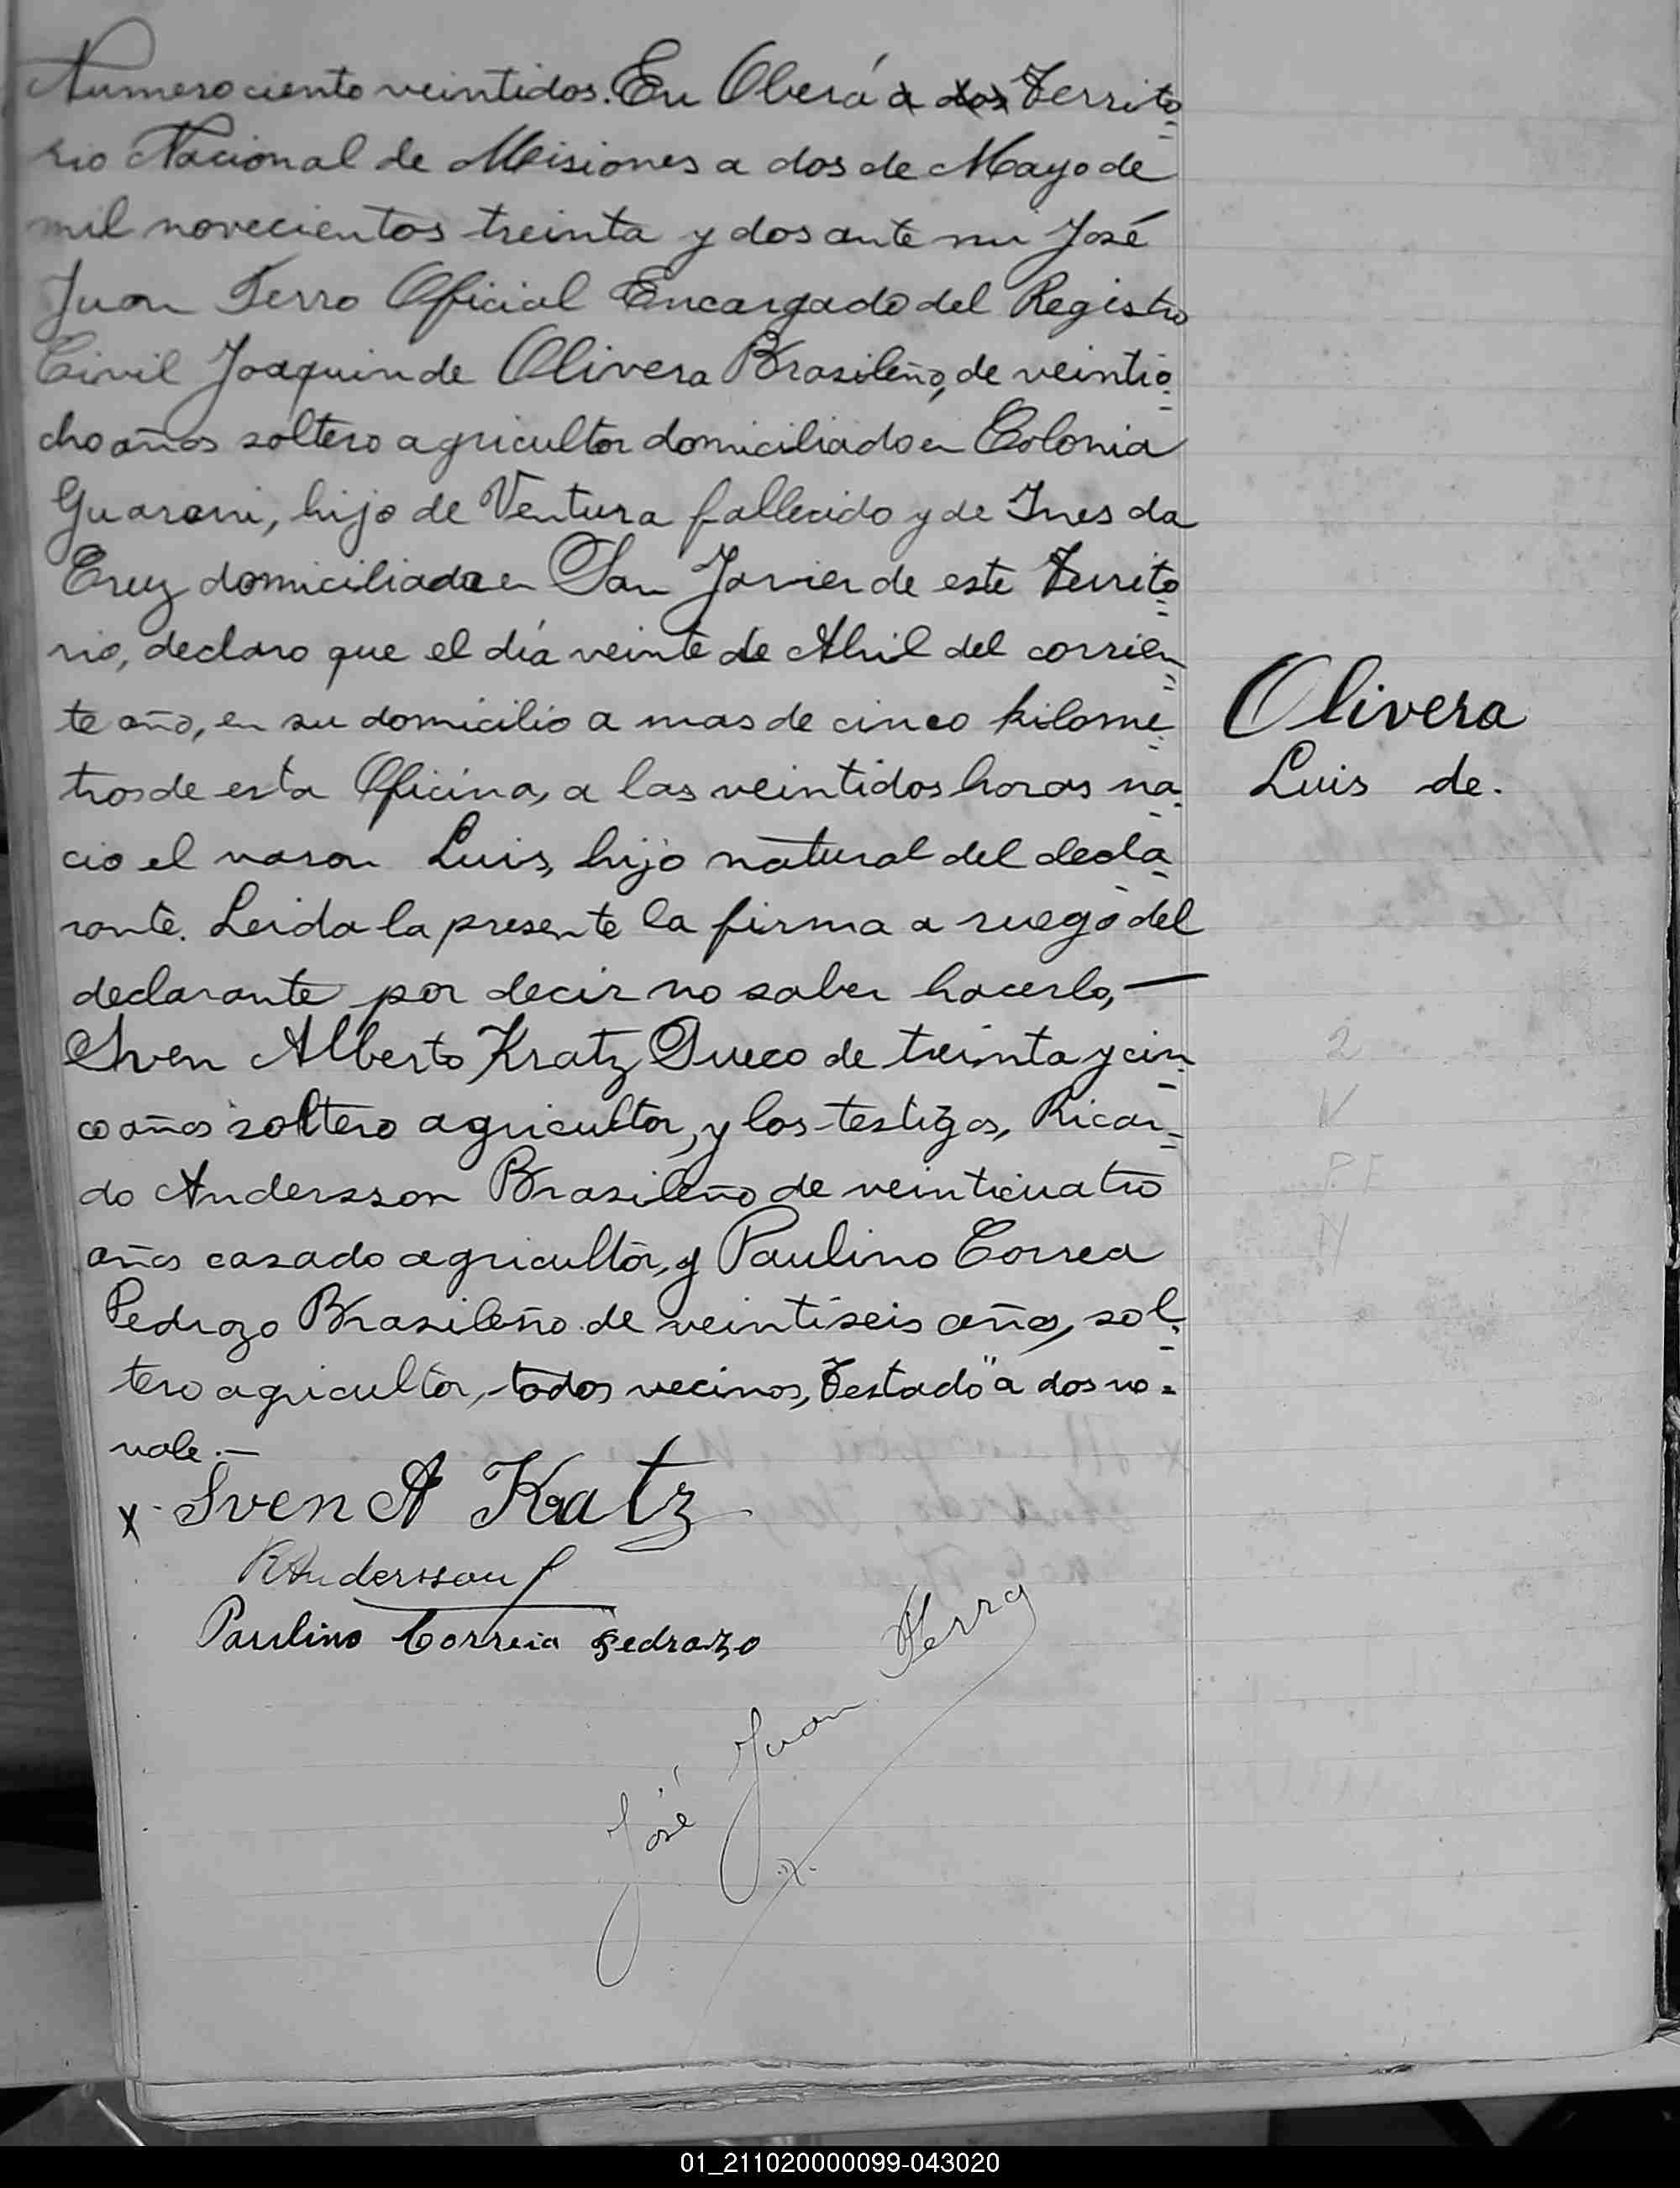 Numero ciento veintidos. En Oberá a dos Territo=
rio Nacional de Misiones a dos de Mayo de
mil novecientos treinta y dos ante mi José
Juan Ferro Oficial Encargado del Registro
Civil Joaquin de Olivera Brasileño, de veintio=
cho años soltero agricultor domiciliado en Colonia
Guarani, hijo de Ventura fallecido y de Ines da
Cruz domiciliada en San Javier de este Territo=
rio, declaro que el día veinte de Abril del corrien=
te año, en su domicilio a mas de cinco kilome=
tros de esta Oficina, a las veintidos horas na=
cio el varon Luis, hijo natural del decla=
rante. Leida la presente la firma a ruego del
declarante por decir no saber hacerlo, —
Sven Alberto Kratz Sueco de treinta y cin=
co años soltero agricultor, y los testigos, Ricar=
do Andersson Brasileño de veinticuatro
años casado agricultor, y Paulino Correa
Pedrozo Brasileño de veintiseis años, sol=
tero agricultor, todos vecinos, Testado "a dos no=
vale.—
Olivera
Luis de.
2
V
P.F
N
x Sven A Kratz
RAndersson
Paulino Correia Pedrozo
José Juan Ferro
01_211020000099-043020